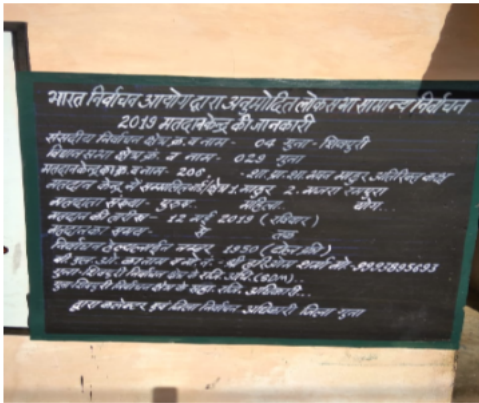 भारत निर्वाचन आयोग द्वारा अनुमोदित लोकसभा सामान्य निर्वाचन
2019 मतदान केन्द्र की जानकारी
संसदीय निर्वाचन क्षेत्र क्र. व नाम - 04 गुना - शिवपुरी
विधान सभा क्षेत्र क्र. व नाम - 029 गुना
मतदान केन्द्र का क्र. व नाम - 206 - शा. प्रा. शा. भवन मावुर अतिरिक्त कक्ष
मतदान केन्द्र में सम्मिलित क्षेत्र 1. मावुर 2. मजरा रामपुरा
मतदाता संख्या - पुरुष. महिला. योग...
मतदान की तारीख - 12 मई 2019 (रविवार)
मतदान का समय - से तक
निर्वाचन हेल्पलाईन नम्बर 1950 (टोल फ्री)
बी.एल.ओ. का नाम व मो. नं.- श्री शर्मा मो.
गुना - शिवपुरी निर्वाचन क्षेत्र के रजि. ऑफि. (SDM)..
निर्वाचन क्षेत्र के सहा. रजि. अधिकारी...
द्वारा कलेक्टर एवं जिला निर्वाचन अधिकारी जिला गुना